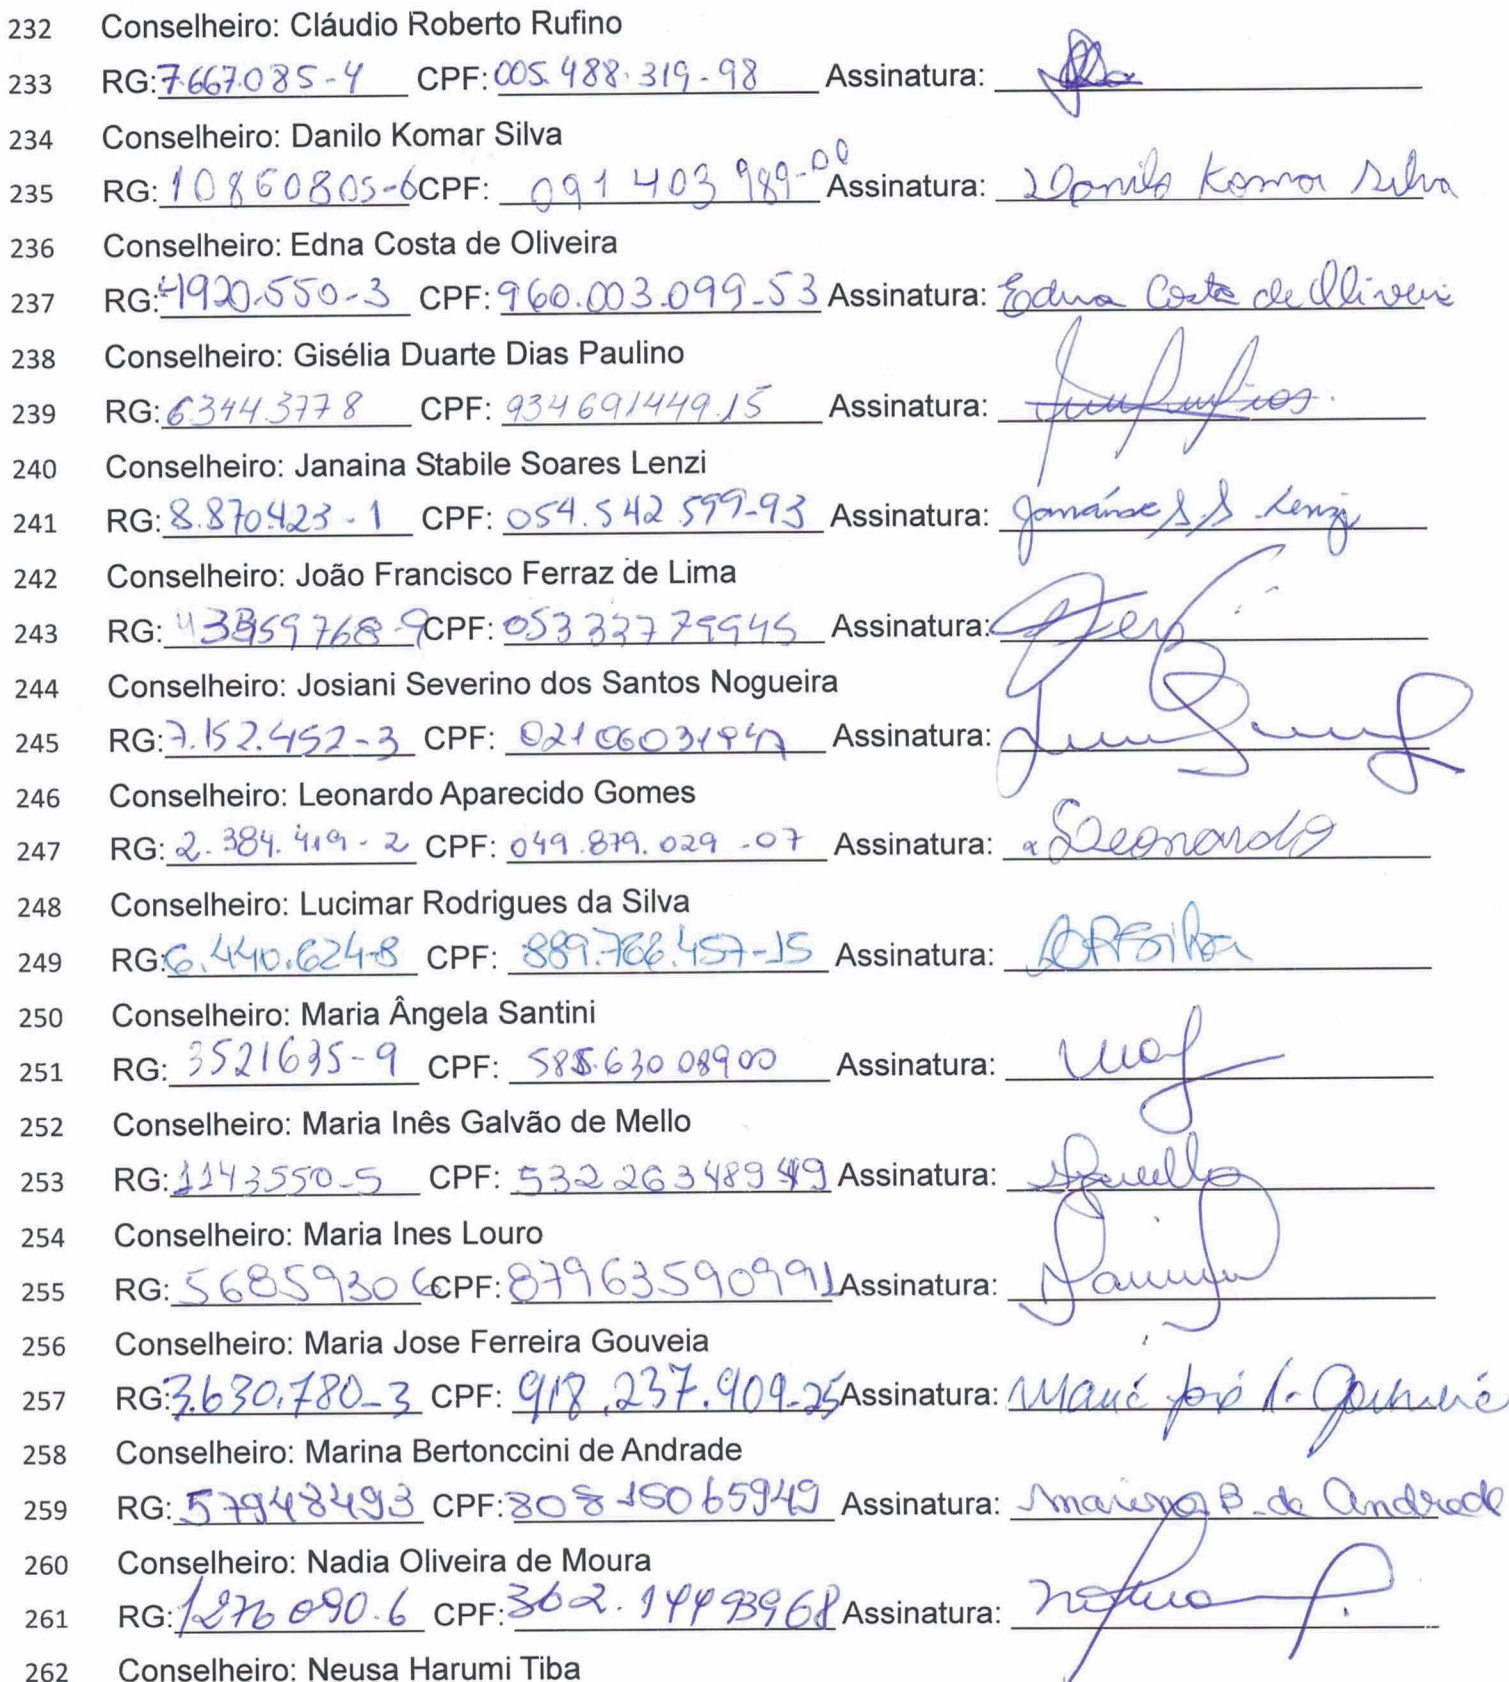 232 Conselheiro: Cláudio Roberto Rufino
233 RG: 7.667.085-4 CPF: 005.488.319-98 Assinatura:
234 Conselheiro: Danilo Komar Silva
235 RG: 10860805-6 CPF: 091 403 989-00 Assinatura: Danilo Komar Silva
236 Conselheiro: Edna Costa de Oliveira
237 RG: 4920.550-3 CPF: 960.003.099-53 Assinatura: Edna Costa de Oliveira
238 Conselheiro: Gisélia Duarte Dias Paulino
239 RG: 6344.3778 CPF: 934691449.15 Assinatura:
240 Conselheiro: Janaina Stabile Soares Lenzi
241 RG: 8.870.423-1 CPF: 054.542.599-93 Assinatura: Janaína S. S. Lenzi
242 Conselheiro: João Francisco Ferraz de Lima
243 RG: CPF: Assinatura:
244 Conselheiro: Josiani Severino dos Santos Nogueira
245 RG: 7.152.452-3 CPF: Assinatura:
246 Conselheiro: Leonardo Aparecido Gomes
247 RG: 2.384.419-2 CPF: 049.879.029-07 Assinatura: Leonardo
248 Conselheiro: Lucimar Rodrigues da Silva
249 RG: 6.440.624-8 CPF: 889.766.457-15 Assinatura: LRSilva
250 Conselheiro: Maria Ângela Santini
251 RG: 3521635-9 CPF: Assinatura:
252 Conselheiro: Maria Inês Galvão de Mello
253 RG: 1143550-5 CPF: Assinatura:
254 Conselheiro: Maria Ines Louro
255 RG: 56859306 CPF: 87963590991 Assinatura:
256 Conselheiro: Maria Jose Ferreira Gouveia
257 RG: 3.630.780-3 CPF: 918.237.909-25 Assinatura:
258 Conselheiro: Marina Bertonccini de Andrade
259 RG: 57948493 CPF: 80815065949 Assinatura: Marina B. de Andrade
260 Conselheiro: Nadia Oliveira de Moura
261 RG: CPF: Assinatura:
262 Conselheiro: Neusa Harumi Tiba